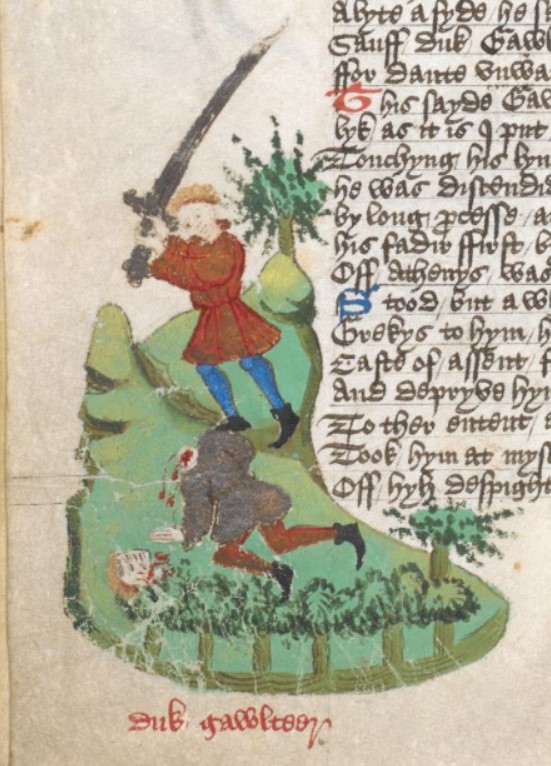 Alyte a syde he se
Sauff duk Gawl
ffor dante vnwa
This sayde Gaw
lyk as it is I put
Touchyng his lyn
he was discendid
by long processe a
his fadir ffirst b
Off athenys was
Stood but a w
Grekys to hym h
Caste of assent f
And depryve hy
To ther entent a
Took hym at mys
Off hyh despight
duk gawlteer